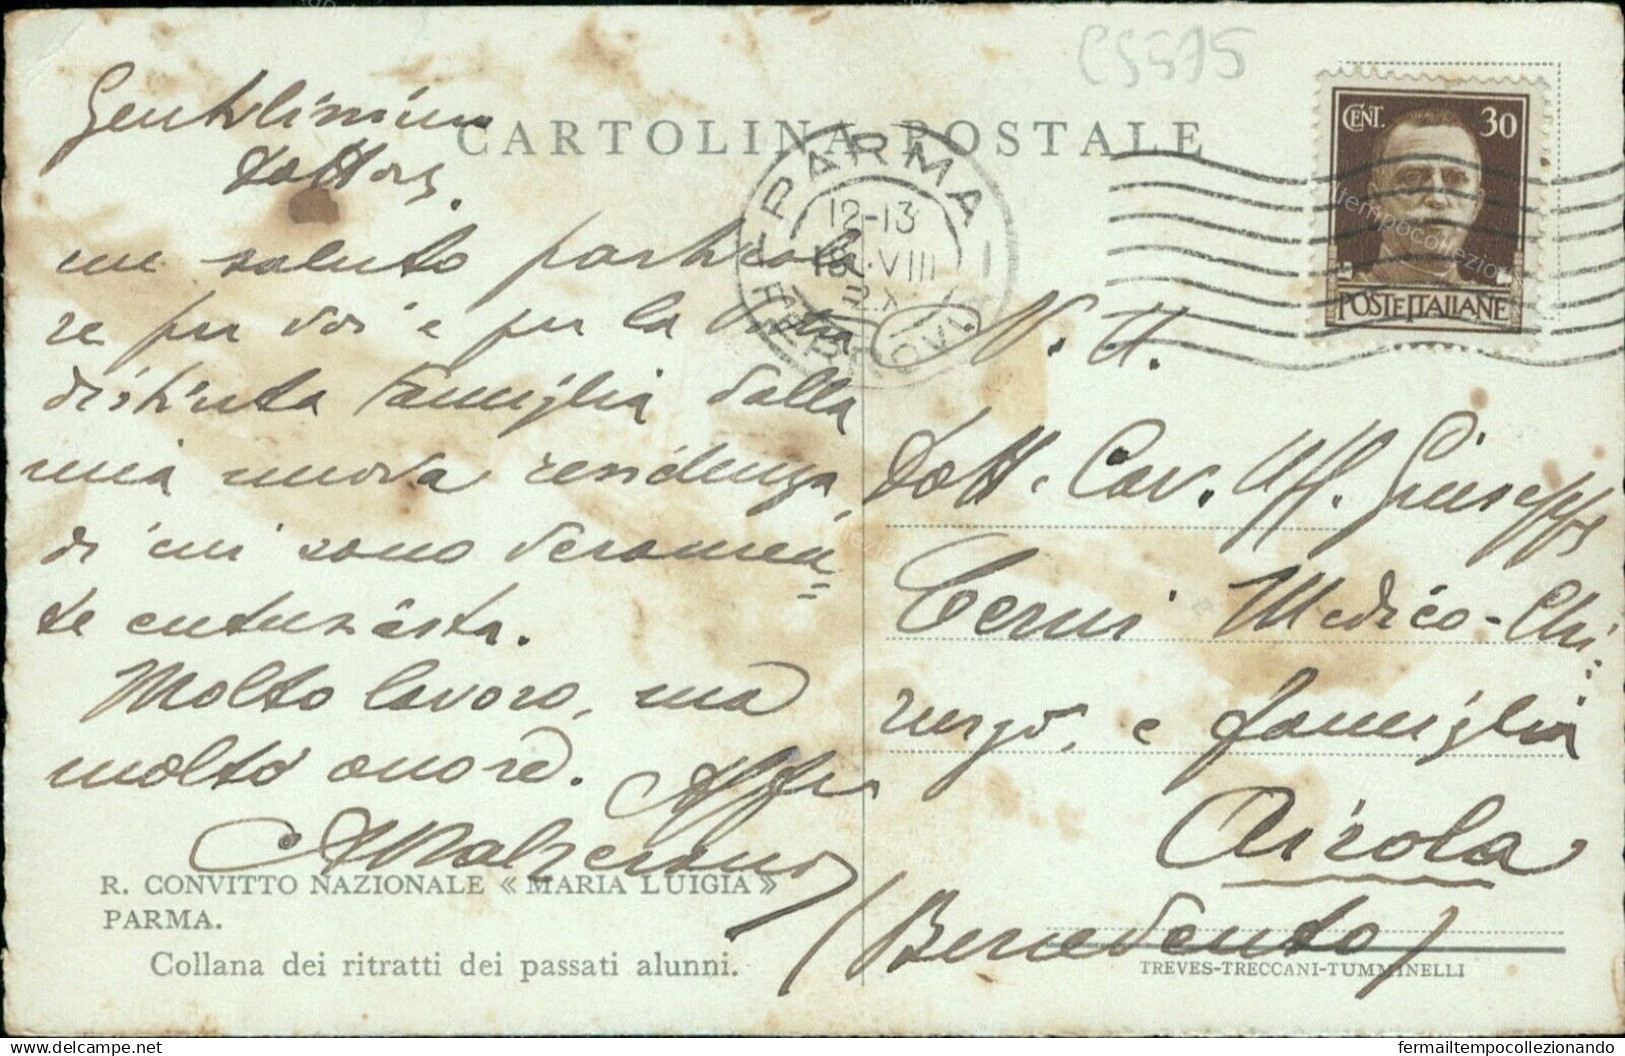 CS575
CARTOLINA POSTALE
CENT. 30
POSTE ITALIANE
PARMA
12-13
VIII
FERROVIA
Gentilissimo
dottore,
un saluto particola
re per voi e per la Vostra
distinta famiglia dalla
mia nuova residenza,
di cui sono veramen=
te entusiasta.
Molto lavoro, ma
molto onore. Affmo
R. CONVITTO NAZIONALE « MARIA LUIGIA »
PARMA.
Collana dei ritratti dei passati alunni.
N. H.
Dott. Cav. Uff. Giuseppe
Cerni Medico-Chi:
rurgo, e famiglia
Airola
(Benevento)
TREVES-TRECCANI-TUMMINELLI
delcampe.net
fermailtempocollezionando